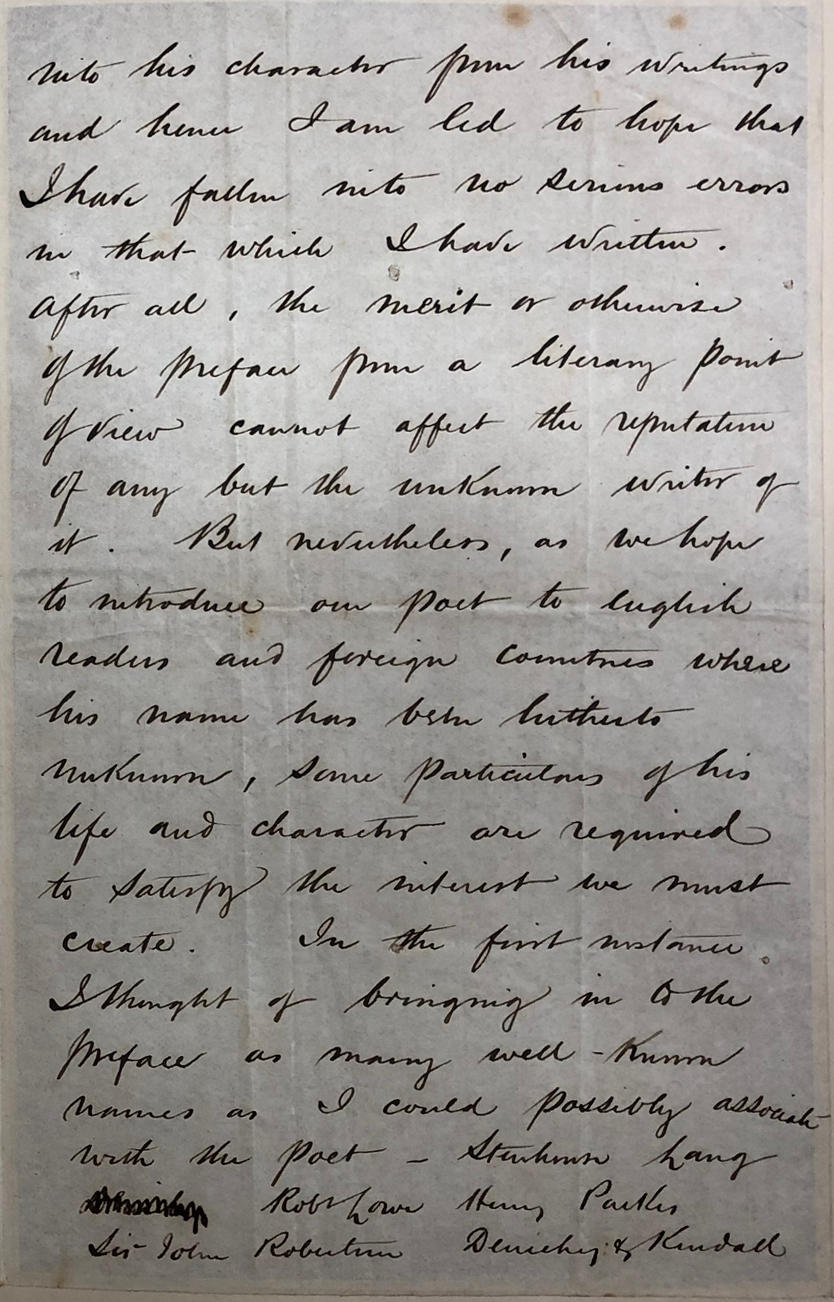 into his character from his writings
and hence I am led to hope that
I have fallen into no serious errors
in that which I have written.
After all, the merit or otherwise
of the preface from a literary point
of view cannot affect the reputation
of any but the unknown writer of
it. But nevertheless, as we hope
to introduce our poet to English
readers and foreign countries where
his name has been hitherto
unknown, some particulars of his
life and character are required
to satisfy the interest we must
create. In the first instance
I thought of bringing in to the
preface as many well-known
names as I could possibly associate
with the poet – Stenhouse Lang
Robt Lowe Henry Parkes
Sir John Robertson Deniehy & Kendall